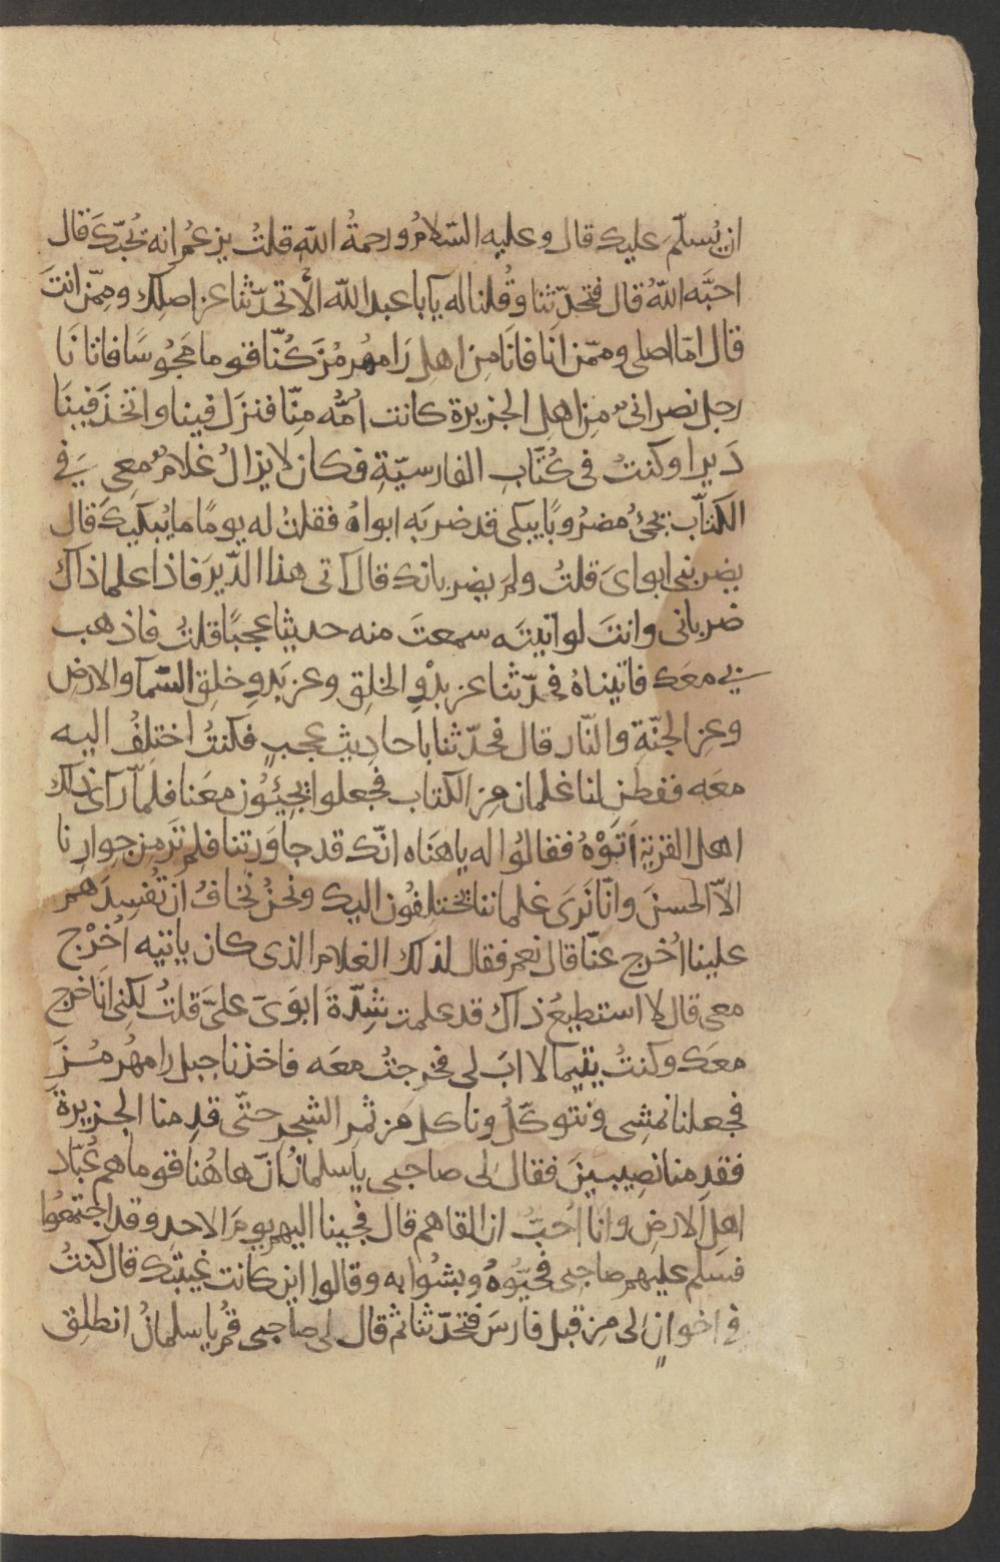 ان يُسلّمَ عليك قال وعليه السّلامُ ورحمةُ اللّه قلتُ يزعُم انه يُحبّكَ قال
احبَّه اللّهُ قال فتحدّثنا وقُلنا له يآ با عبد اللّه الَا تحدّثنا عن اصلِك وممّن انتَ
قال امّا اصلى وممّن انَا فانَا مِن اهلِ رَامهُرمُزَ كُنّا قوما مَجُوسًا فاتانَا
رجل نصرانىٌّ مِن اهل الجزيرة كانت اُمُّه مِنّا فنزَل فينا واتخذَ فينَا
دَيرا وكنتُ فى كُتَّابِ الفارسيّةِ فكان لا يزالُ غُلامٌ معِى فى
الكتّاب يجىُٔ مضرُوبًا يبكى قد ضربَه ابواهُ فقلتُ له يومًا ما يُبكيكَ قال
يضربنى ابواىَ قلتُ ولمَ يضربانك قال آتى هذا الدّيرَ فاذا علما ذاك
ضربانى وانتَ لو اتيتَه سمعتَ منه حديثا عجبًا قلتُ فاذهب
بى معَك فاتيناهُ فحدّثنا عن بدْوِ الخلقِ وعن بَدوِ خلقِ السّمآ والارضِ
وعن الجنّةِ والنّار قال فحدّثنا باحاديث عجبٍ فكنتُ اختلِفُ اليه
معَه ففطن لنا غلمان مِن الكتاب فجعلوا يجيئُون معَنا فلمّا رآى ذلك
اهل القريةِ اَتَوْهُ فقالُوا له ياهَناه انّك قد جاوَرتنا فلم ترَ مِن جوارِنا
الّا الحسنَ وانّا نَرَى غلماننا يختلِفُون اليك ونحنُ نخافُ ان تُفسِدَهم
علينا اُخرج عنّا قال نعم فقال لذلك الغلام الذى كان ياتيه اُخرُج
معى قال لا استطيعُ ذاك قد علمت شِدّةَ ابَوَىَّ علىَّ قلتُ لكنى انَا اخرج
معَك وكنتُ يتيما لا ابَ لى فخرجتُ معَه فاخذنا جبل رامهُرمُزَ
فجعلنا نمشِى ونتوكّلُ وناكل مِن ثمرِ الشجرِ حتّى قدِمنا الجزيرةَ
فقدِمنا نصِيبينَ فقال لى صاحبى يا سلمانُ انّ هاهُنا قوما هم عُبّاد
اهلِ الارضِ وانا اُحبُّ ان القاهم قال فجينا اليهم يومَ الاحدِ وقد اجتمعُوا
فسلّم عليهم صاحبى فحيّوهُ وبشُّوا به وقالوا اين كانت غيبتك قال كنتُ
فى اخوانٍ لى مِن قبل فارسَ فتحدّثنا ثم قال لى صاحبى قُم يا سلمانُ انطلِق